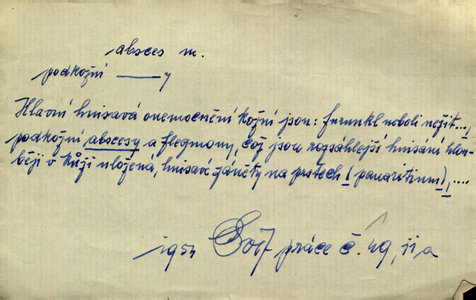 absces m.
podkožní ——y
Hlavní hnisavá onemocnění kožní jsou: furunkl neboli nežit...,
podkožní abscesy a flegmony, což jsou rozsáhlejší hnisání hlou-
běji v kůži uložená, hnisavé záněty na prstech (panaritium), ....
1954 práce č. 49, II a